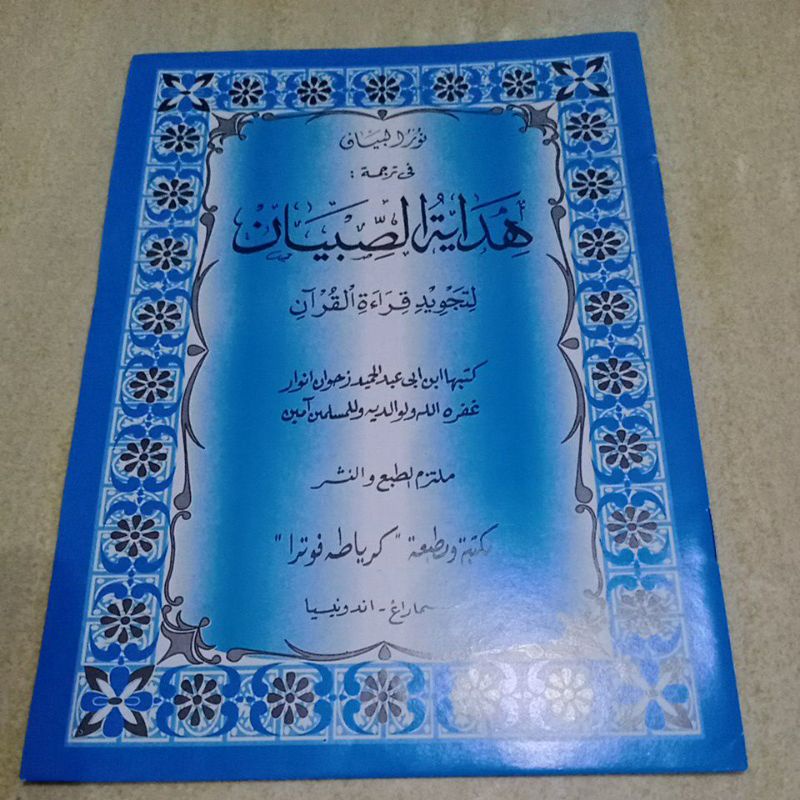 نور البيان
فى ترجمة :
هُدَايَةُ الصِّبْيَانْ
لِتَجْوِيْدِ قِرَاءَةِ الْقُرْآنِ
كتبها ابن ابى عبد الحميد زحوان انوار
غفره الله ولوالديه وللمسلمين آمين
ملتزم الطبع والنشر
مكتبة ومطبعة "كرياطه فوترا"
سماراغ - اندونيسيا